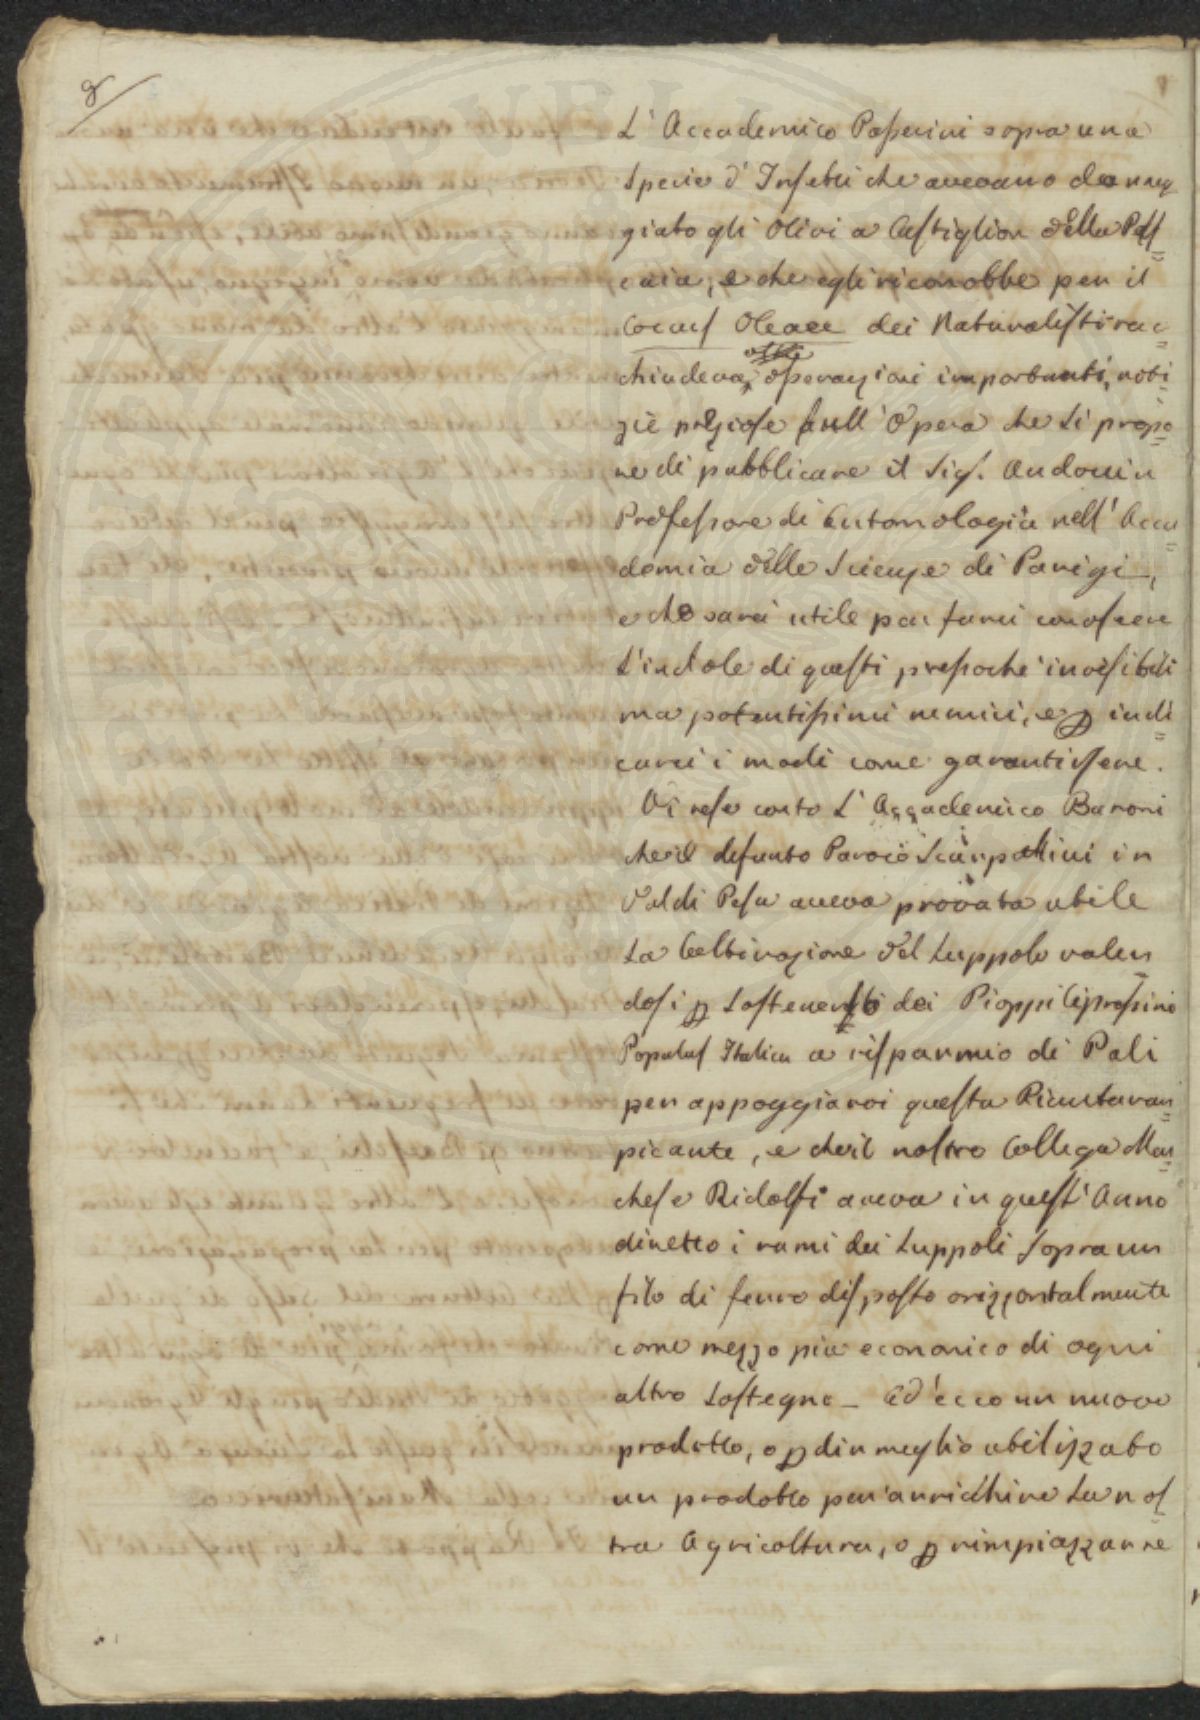 8
L' Accademico Passerini sopra una
specie d' Insetti che avevano danneg
giato gli Olivi a Castiglion della Pes=
caia, e che egli riconobbe per il
Coccus Oleaee dei Naturalisti rac=
chiudeva, osservazioni importanti, noti=
zie preziose sull' Opera che si propo=
ne di pubblicare il Sig. Audouin
Professore di Entomologia nell' Acca=
demia delle Scienze di Parigi,
e che sarà utile per farci conoscere
L'indole di questi pressochè invisibili
ma potentissimi nemici, e p indi=
carci i modi come garantirsene.
Vi rese conto L' Accademico Baroni
che il defunto Paroco Scarpettini in
Val di Pesa aveva provata utile
La Coltivazione del Luppolo valen
dosi p sostenerlo dei Pioppi Cipressini
Populus Italica a risparmio di Pali
per appoggiarvi questa Pianta ram=
picante, e che il nostro Collega Mar=
chese Ridolfi aveva in quest' Anno
diretto i rami dei Luppoli sopra un
filo di ferro disposto orizzontalmente
come mezzo più economico di ogni
altro sostegno _ Ed ecco un nuovo
prodotto, o p dir meglio utilizzato
un prodotto per arricchire La nos=
tra Agricoltura, o p rimpiazzarne